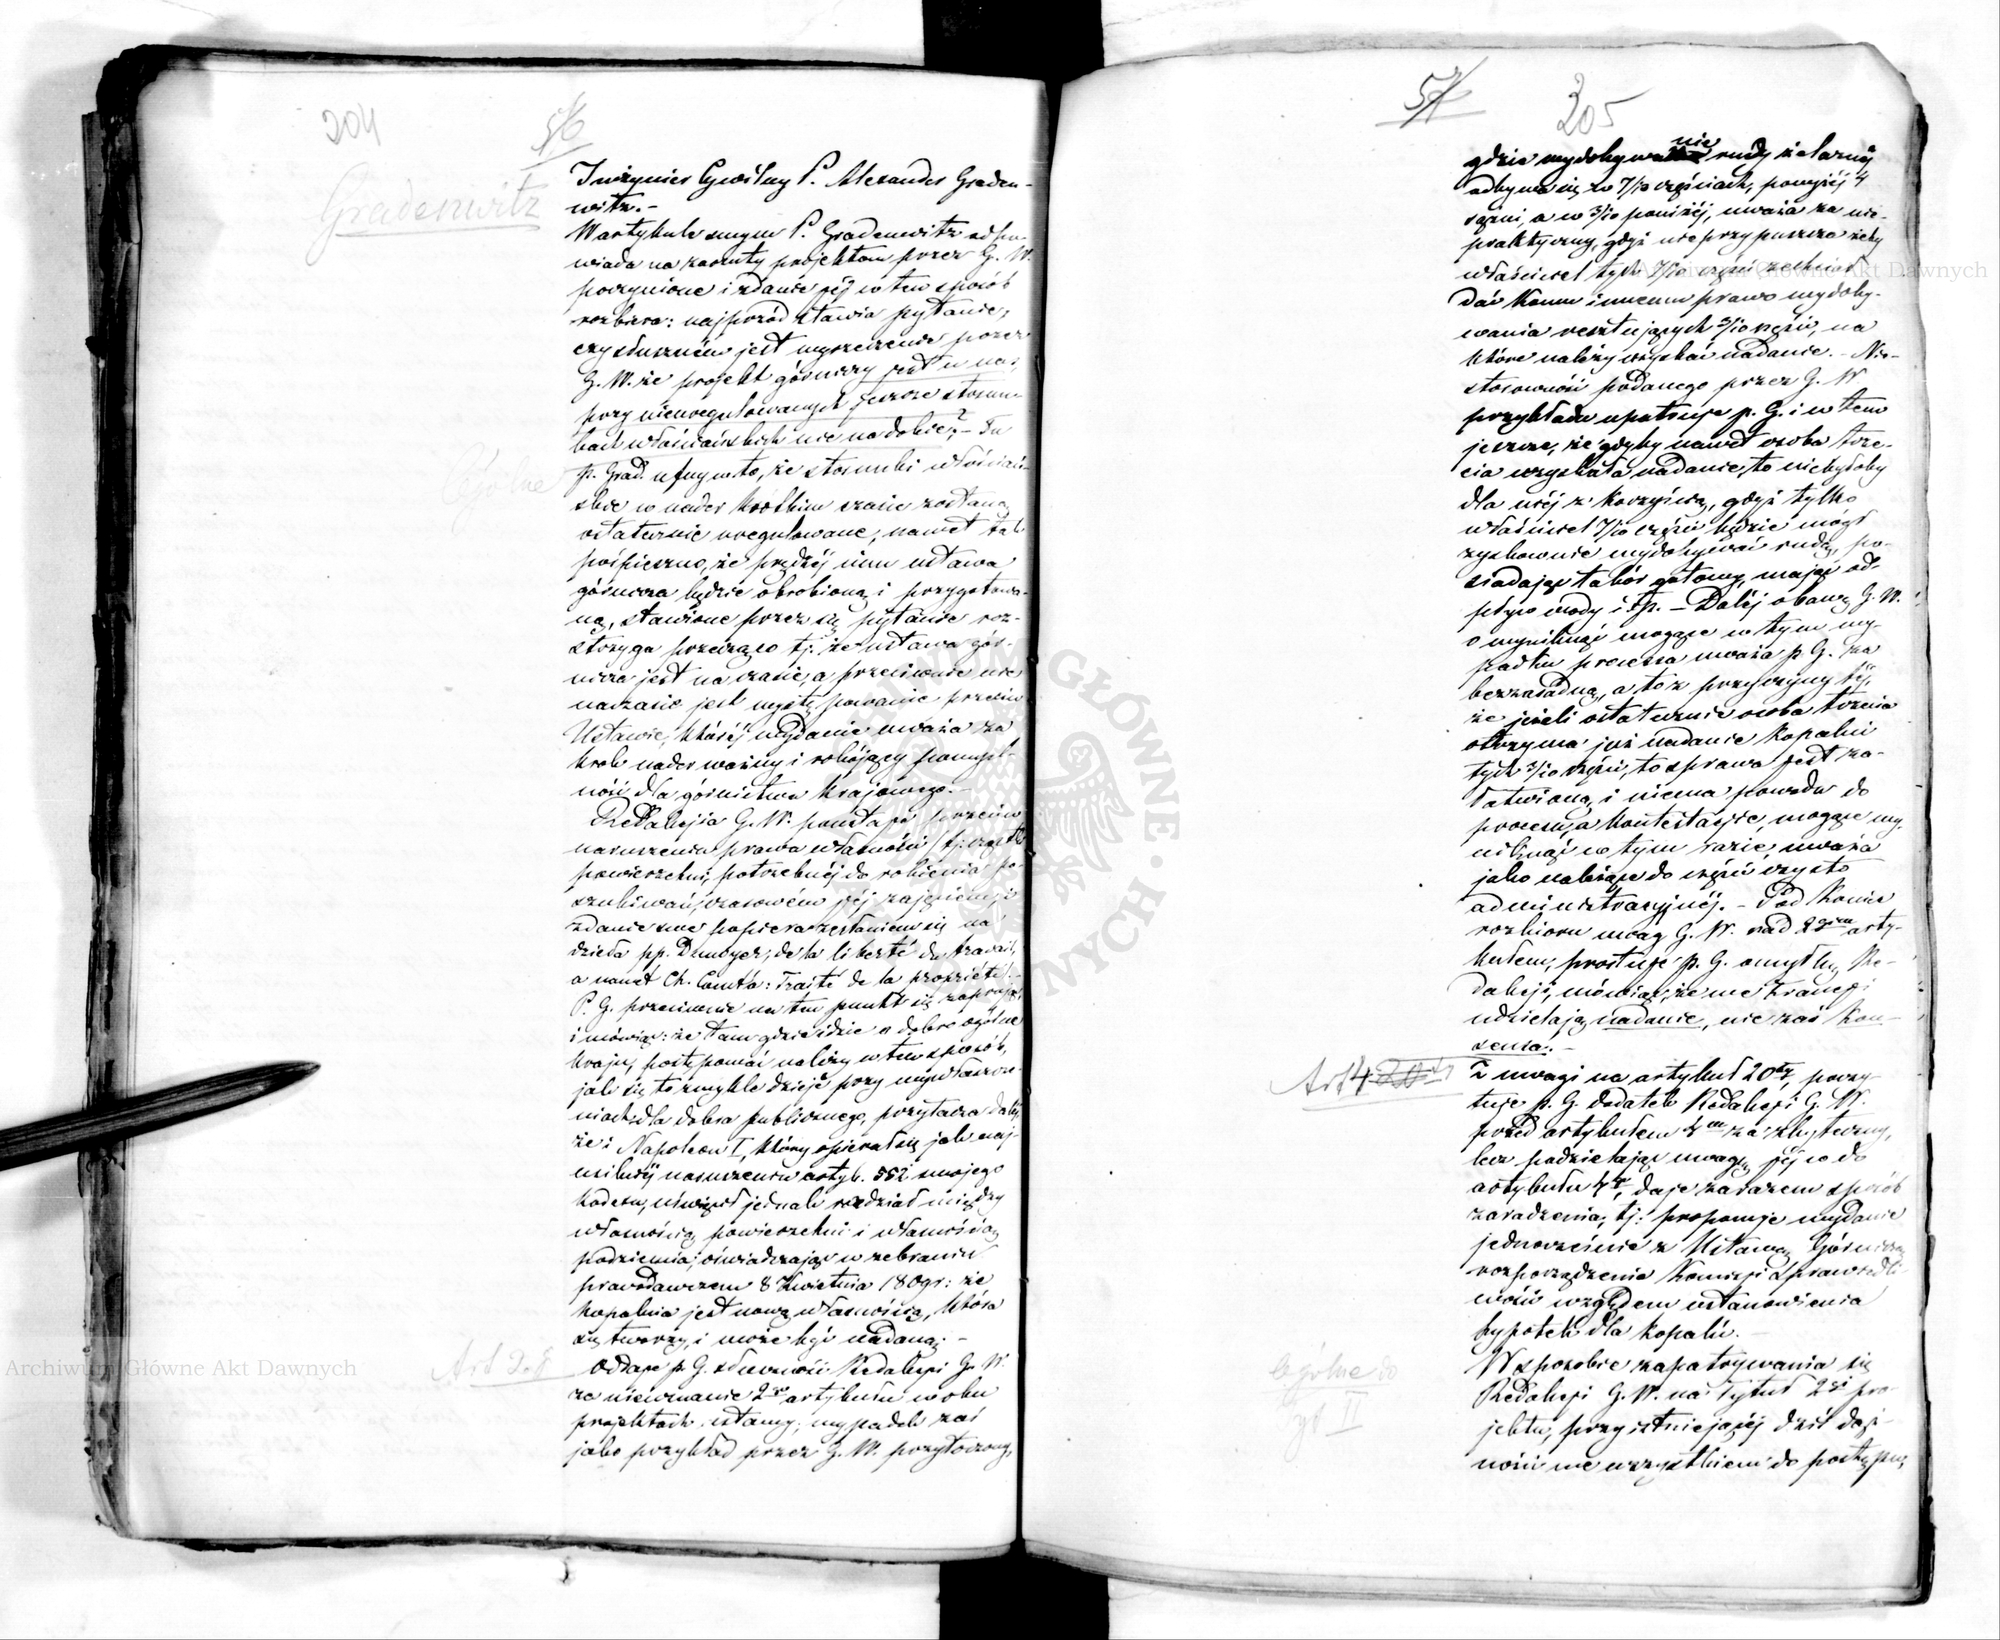 204
56
Gradenwitz
Inżynier Cywilny P. Alexander Graden-
witz.-
W artykule swym P. Gradenwitz odpo-
wiada na zarzuty projektom przez G. W.
poczynione i zdanie jéj w ten sposób
rozbiera: najprzód stawia pytanie,
czy słuszném jest wyrzeczenie przez
G. W. że projekt górniczy jest u nas,
przy nieuregulowanych jeszcze stosun-
kach włościańskich nie na dobie? - Tu
Ogólne
p. Grad. ufny w to, że stosunki włościań-
skie w nader krótkim czasie zostaną
ostatecznie uregulowane, nawet tak
pośpieszno, że prędzéj nim ustawa
górnicza będzie obrobioną i przygotowa-
ną, stawione przez się pytanie roz-
strzyga przecząco tj. że ustawa gór-
nicza jest na czasie, a przeciwnie nie
na czasie jest występowanie przeciw
Ustawie, któréj wydanie uważa za
krok nader ważny i rokujący pomyśl-
ność dla górnictwa krajowego.-
Redakcja G. W. powstając przeciw
naruszeniu prawa własności (tj. części
powierzchni, potrzebnéj do robienia po-
szukiwań, czasowém jéj zajęciem, i
zdanie swe popiera zesłaniem się na
dzieła pp. Dunoyer, de la liberté du travail,
a nawet Ch. Comta: Traité de la propriété.-
P. G. przeciwnie na ten punkt się zapatruje
i mówiąc: że tam gdzie idzie o dobro ogólne
kraju, postępować należy w ten sposób,
jak się to zwykle dzieje przy wywłaszcze-
niach dla dobra publicznego, przytacza daléj
że i Napoleon I, który opierał się jak naj-
usilniéj naruszeniu artyk. 552 swojego
kodexu, uświęcił jednak rozdział między
własnością powierzchni i własnością
podziemia, oświadczając w zebraniu
prawodawczem 8 Kwietnia 1809 r: że
kopalnia jest nową własnością, która
się tworzy i może być nadaną.-
Art 2. §
Oddaje p. G. słuszność Redakcji G. W.
za nieuznanie 2go artykułu w obu
projektach ustawy; wypadek zaś
jako przykład przez G. W. przytoczony,
57
205
gdzie wydobywanie rudy żelaznéj
odbywa się w 7/10 częściach, powyżéj 4
sążni, a w 3/10 poniżéj, uważa za nie-
praktyczny, gdyż nie przypuszcza żeby
właściciel tych 7/10 części zechciał
dać komu innemu prawo wydoby-
wania resztujących 3/10 części, na
które należy uzyskać nadanie. - Nie-
stosowność podanego przez G. W.
przykładu upatruje p. G. i w tem
jeszcze, że gdyby nawet osoba trze-
cia uzyskała nadanie, to nie byłoby
dla niéj z korzyścią, gdyż tylko
właściciel 7/10 części będzie mógł
zyskownie wydobywać rudę, po-
siadając tabór gotowy, mając od-
pływ wody i tp. - Daléj obawę G. W.
o wyniknąć mogące w tym wy-
padku processa uważa p. G. za
bezzasadną, a to z przyczyny téj,
że jeżeli ostatecznie osoba trzecia
otrzyma już nadanie kopalni
tych 3/10 części, to sprawa jest za-
łatwioną i niema powodu do
procesu, a kontestacje, mogące wy-
niknąć w tym razie, uważa
jako należące do części czysto
administracyjnéj. - Pod koniec
rozbioru uwag G. W. nad 2gim arty-
kułem, prostuje p. G. omyłkę Re-
dakcji, mówiąc, że we Francji
udzielają nadanie, nie zaś kon-
sensa.-
Art 4
Z uwagi na artykuł 20ty, poczy-
tuje p. G. dodatek Redakcji G. W.
przed artykułem 4m za zbyteczny,
lecz podzielając uwagę jéj co do
artykułu 4go, daje zarazem sposób
zaradzenia, tj: proponuje wydanie
jednocześnie z Ustawą Górniczą
rozporządzenia Komisji Sprawiedli-
wości względem ustanowienia
hypotek dla kopalń.-
Ogólne do
yt II
W sposobie zapatrywania się
Redakcji G. W. na Tytuł 2gi pro-
jektu, przy istniejącéj dziś dąż-
ności we wszystkiem do postępu,
Archiwum Główne Akt Dawnych
Archiwum Główne Akt Dawnych